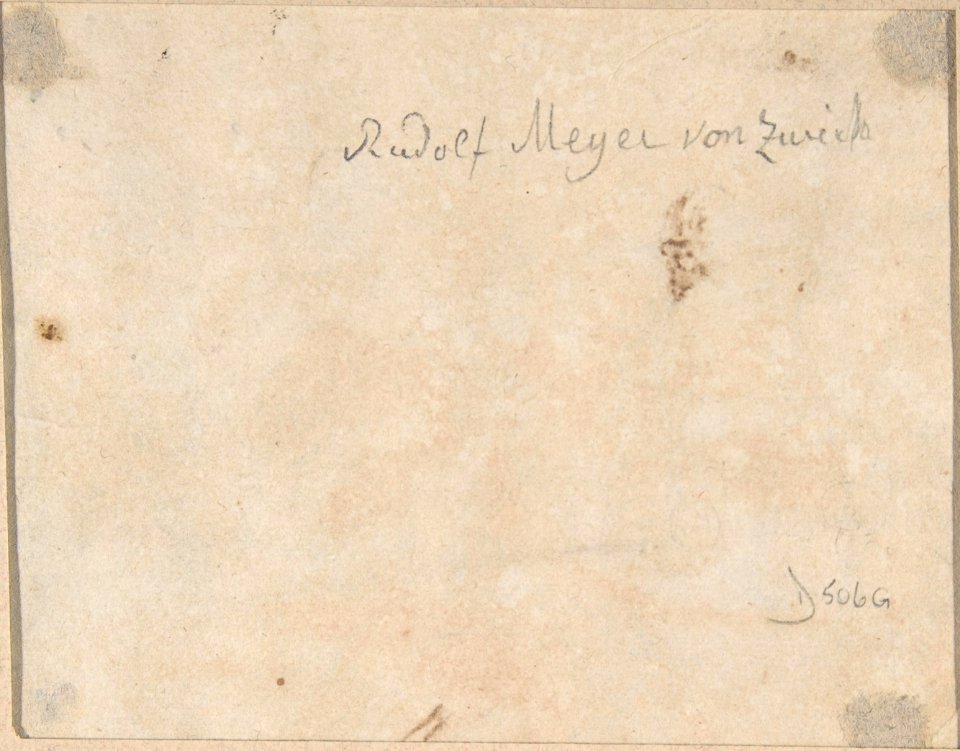 Rudolf Meyer von Zurich
D 506G